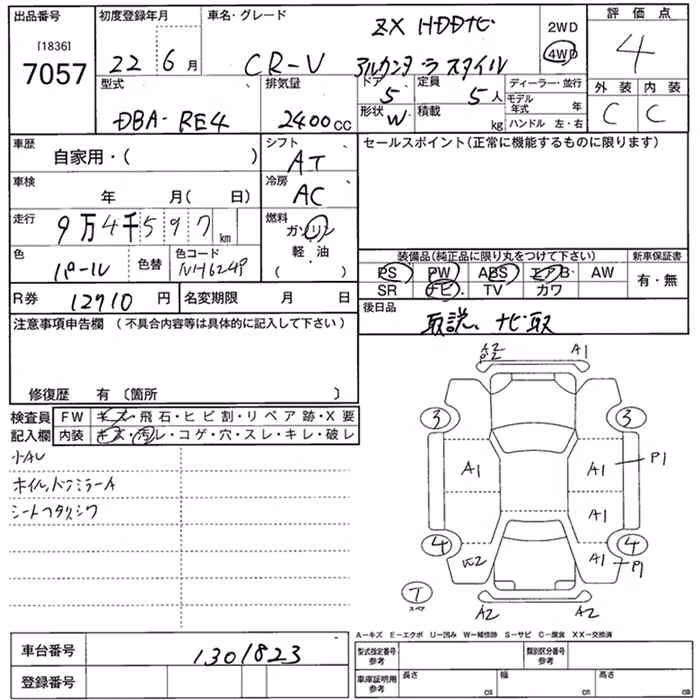 出品番号 初度登録年月 車名・グレード ZX HDDナビ 2WD 評価点
[1836] 7057 22 6月 CR-V アルカンターラ スタイル 4WD 4
型式 排気量 ドア 5 定員 5人 ディーラー・並行 外装 内装
DBA-RE4 2400cc 形状 W 積載 kg モデル年式 年 C C
ハンドル 左・右
車歴 自家用・( ) シフト AT セールスポイント(正常に機能するものに限ります)
車検 年 月( 日) 冷房 AC
走行 9万4千597km 燃料 ガソリン
軽・油
( )
色 パール 色替 色コード NH624P 装備品(純正品に限り丸をつけて下さい) 新車保証書
PS PW ABS エアB AW 有・無
R券 12710円 名変期限 月 日 SR ナビ TV カワ
注意事項申告欄 (不具合内容等は具体的に記入して下さい) 後日品 取説、ナビ取
修復歴 有〔箇所 〕
検査員 FW キズ・飛石・ヒビ割・リペア跡・X要
記入欄 内装 キズ・汚レ・コゲ・穴・スレ・キレ・破レ
小AU
ホイル,ドアミラーA
シートヘタリシワ
A2 A1
3 3
A1 A1 P1
A1
4 4
W2 A1 P1
T
スペア
A2 A2
A-キズ E-エクボ U-凹み W-補修跡 S-サビ C-腐食 XX-交換済
車台番号 1301823 型式指定番号 参考 類別区分番号 参考
登録番号 車庫証明用 参考 長さ cm 幅 cm 高さ cm